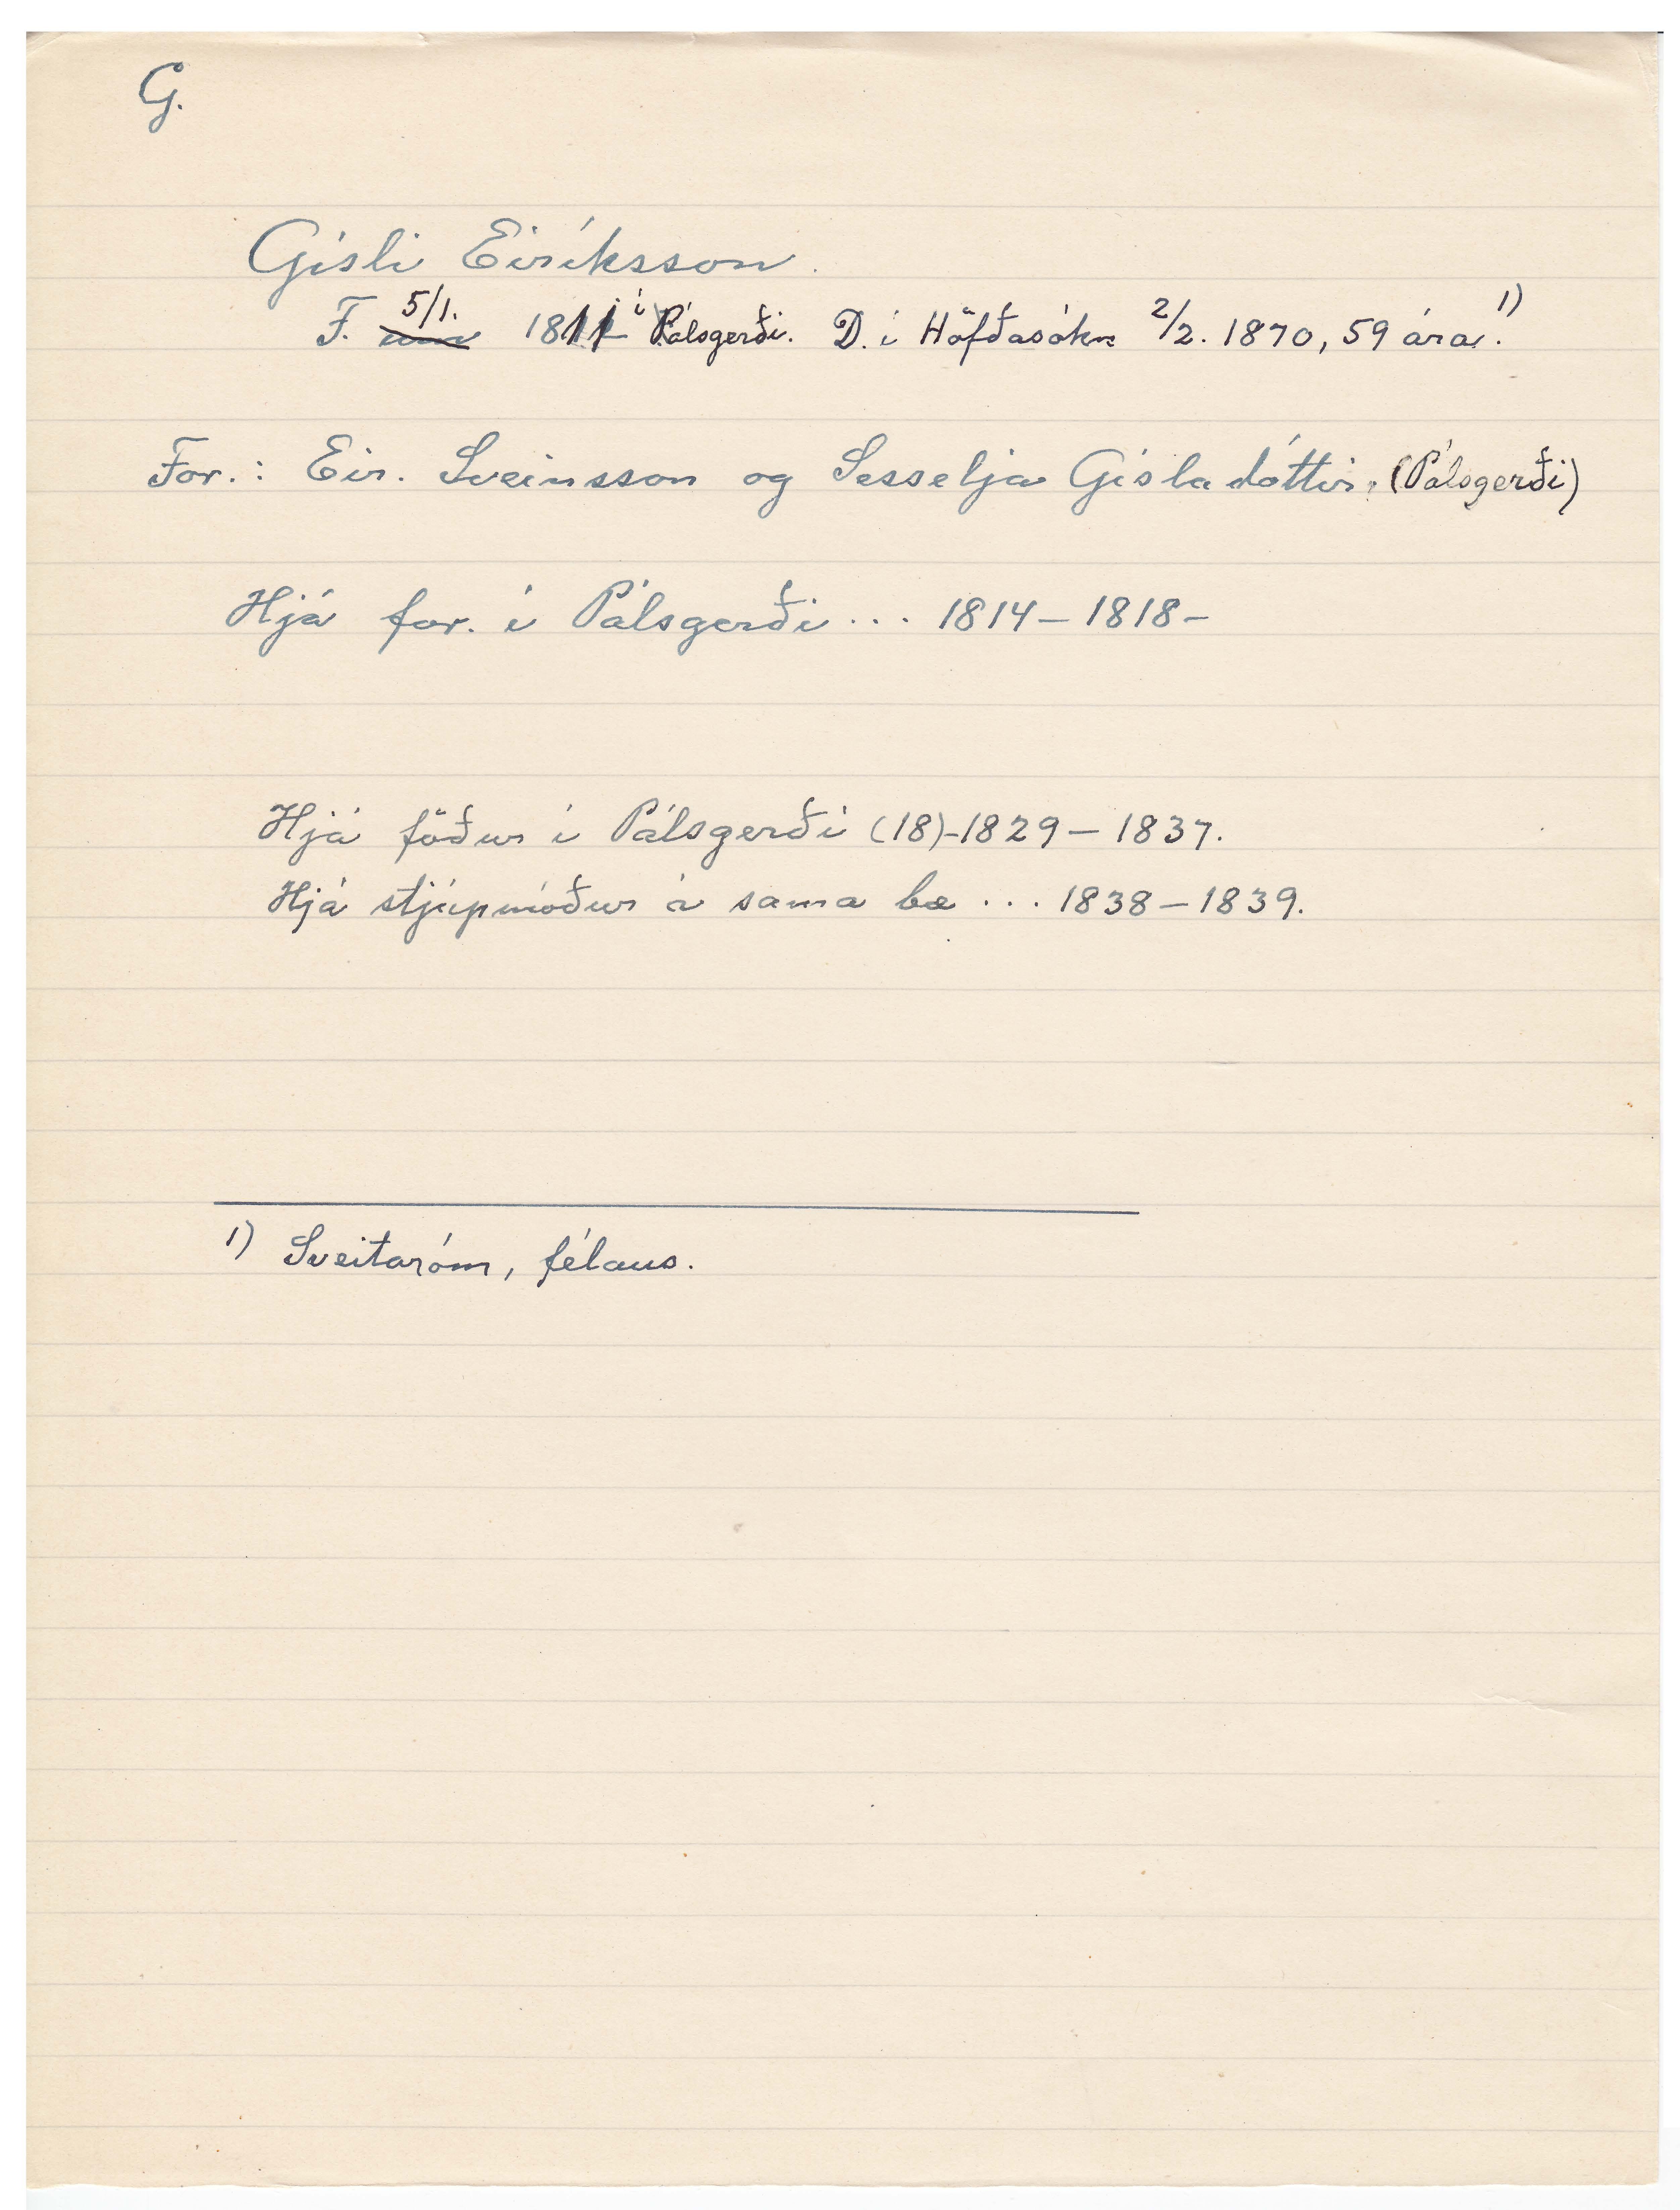 G.
Gísli Eiríksson.
F. 5/1. 1811 í Pálsgerði. D. í Höfðasókn 2/2. 1870, 59 ára. 1)
For.: Eir. Sveinsson og Sesselja Gísladóttir, (Pálsgerði)
Hjá for. í Pálsgerði ... 1814 – 1818 –
Hjá föður í Pálsgerði (18)-1829 – 1837.
Hjá stjúpmóður á sama bæ ... 1838 – 1839.
1) Sveitaróm, félaus.